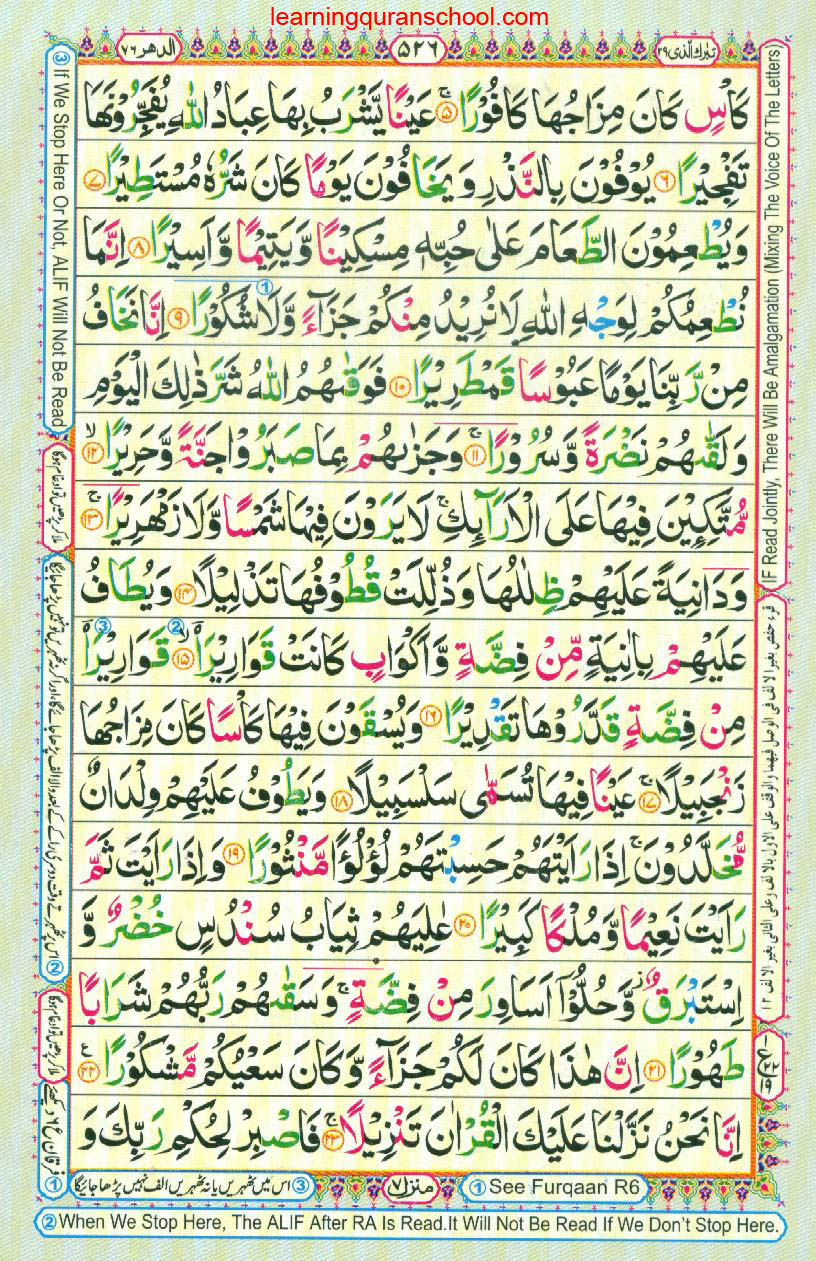 learningquranschool.com
تبٰرك الذی ۲۹
۵۲۶
الدهر ۷۶
كَاْسٍ كَانَ مِزَاجُهَا كَافُوْرًا ۚ ﴿۵﴾ عَيْنًا يَّشْرَبُ بِهَا عِبَادُ اللّٰهِ يُفَجِّرُوْنَهَا
تَفْجِيْرًا ﴿۶﴾ يُوْفُوْنَ بِالنَّذْرِ وَيَخَافُوْنَ يَوْمًا كَانَ شَرُّهٗ مُسْتَطِيْرًا ﴿۷﴾
وَيُطْعِمُوْنَ الطَّعَامَ عَلٰى حُبِّهٖ مِسْكِيْنًا وَّيَتِيْمًا وَّاَسِيْرًا ﴿۸﴾ اِنَّمَا
نُطْعِمُكُمْ لِوَجْهِ اللّٰهِ لَا نُرِيْدُ مِنْكُمْ جَزَآءً وَّلَا شُكُوْرًا ﴿۹﴾ اِنَّا نَخَافُ
مِنْ رَّبِّنَا يَوْمًا عَبُوْسًا قَمْطَرِيْرًا ﴿۱۰﴾ فَوَقٰىهُمُ اللّٰهُ شَرَّ ذٰلِكَ الْيَوْمِ
وَلَقّٰىهُمْ نَضْرَةً وَّسُرُوْرًا ۚ ﴿۱۱﴾ وَجَزٰىهُمْ بِمَا صَبَرُوْا جَنَّةً وَّحَرِيْرًا ۙ ﴿۱۲﴾
مُّتَّكِـِٕيْنَ فِيْهَا عَلَى الْاَرَآئِكِ ۚ لَا يَرَوْنَ فِيْهَا شَمْسًا وَّلَا زَمْهَرِيْرًا ۚ ﴿۱۳﴾
وَدَانِيَةً عَلَيْهِمْ ظِلٰلُهَا وَذُلِّلَتْ قُطُوْفُهَا تَذْلِيْلًا ﴿۱۴﴾ وَيُطَافُ
عَلَيْهِمْ بِاٰنِيَةٍ مِّنْ فِضَّةٍ وَّاَكْوَابٍ كَانَتْ قَوَارِيْرَا۠ ۙ ﴿۱۵﴾ قَوَارِيْرَا۠
مِنْ فِضَّةٍ قَدَّرُوْهَا تَقْدِيْرًا ﴿۱۶﴾ وَيُسْقَوْنَ فِيْهَا كَاْسًا كَانَ مِزَاجُهَا
زَنْجَبِيْلًا ۚ ﴿۱۷﴾ عَيْنًا فِيْهَا تُسَمّٰى سَلْسَبِيْلًا ﴿۱۸﴾ وَيَطُوْفُ عَلَيْهِمْ وِلْدَانٌ
مُّخَلَّدُوْنَ ۚ اِذَا رَاَيْتَهُمْ حَسِبْتَهُمْ لُؤْلُؤًا مَّنْثُوْرًا ﴿۱۹﴾ وَاِذَا رَاَيْتَ ثَمَّ
رَاَيْتَ نَعِيْمًا وَّمُلْكًا كَبِيْرًا ﴿۲۰﴾ عٰلِيَهُمْ ثِيَابُ سُنْدُسٍ خُضْرٌ وَّ
اِسْتَبْرَقٌ ۫ وَّحُلُّوْۤا اَسَاوِرَ مِنْ فِضَّةٍ ۚ وَسَقٰىهُمْ رَبُّهُمْ شَرَابًا
طَهُوْرًا ﴿۲۱﴾ اِنَّ هٰذَا كَانَ لَكُمْ جَزَآءً وَّكَانَ سَعْيُكُمْ مَّشْكُوْرًا ﴿۲۲﴾ ع
اِنَّا نَحْنُ نَزَّلْنَا عَلَيْكَ الْقُرْاٰنَ تَنْزِيْلًا ۚ ﴿۲۳﴾ فَاصْبِرْ لِحُكْمِ رَبِّكَ وَ
IF Read Jointly, There Will Be Amalgamation (Mixing The Voice Of The Letters)
③ If We Stop Here Or Not, ALIF Will Not Be Read
ملا کر پڑھیں تو ادغام ہوگا
ملا کر پڑھیں تو ادغام ہوگا
① See Furqaan R6
منزل ۷
③ اس میں ٹھہریں یا نہ ٹھہریں الف نہیں پڑھا جائیگا
② When We Stop Here, The ALIF After RA Is Read.It Will Not Be Read If We Don't Stop Here.